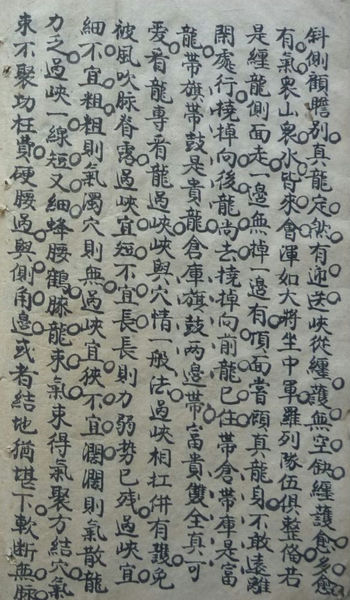 斜側顧瞻别真龍定然有迎送峽從纏護無空缺纏護愈多愈
有氣衆山衆水皆來會渾如大將坐中軍羅列隊伍俱整俻若
是纏龍側面走一邊無棹一邊有頂面當顧真龍身不敢遠離
閑處行橈掉向後龍尚去橈掉向前龍已住帶倉帶庫是富
龍帶旗帶鼓是貴龍倉庫旗鼓兩边帶富貴雙全真可
爱看龍專看龍過峽峽與穴情一般法過峽相扛併有護免
被風吹脉脊露過峽宜短不宜長長則力弱勢已殘過峽宜
細不宜粗粗則氣濁穴則無過峽宜狹不宜濶濶則氣散龍
力乏過峽一線短又細蜂腰鶴膝龍束氣束得氣聚方結穴氣
束不聚功枉費硬腰過與側角邊或者結地猶堪下軟斷無脉